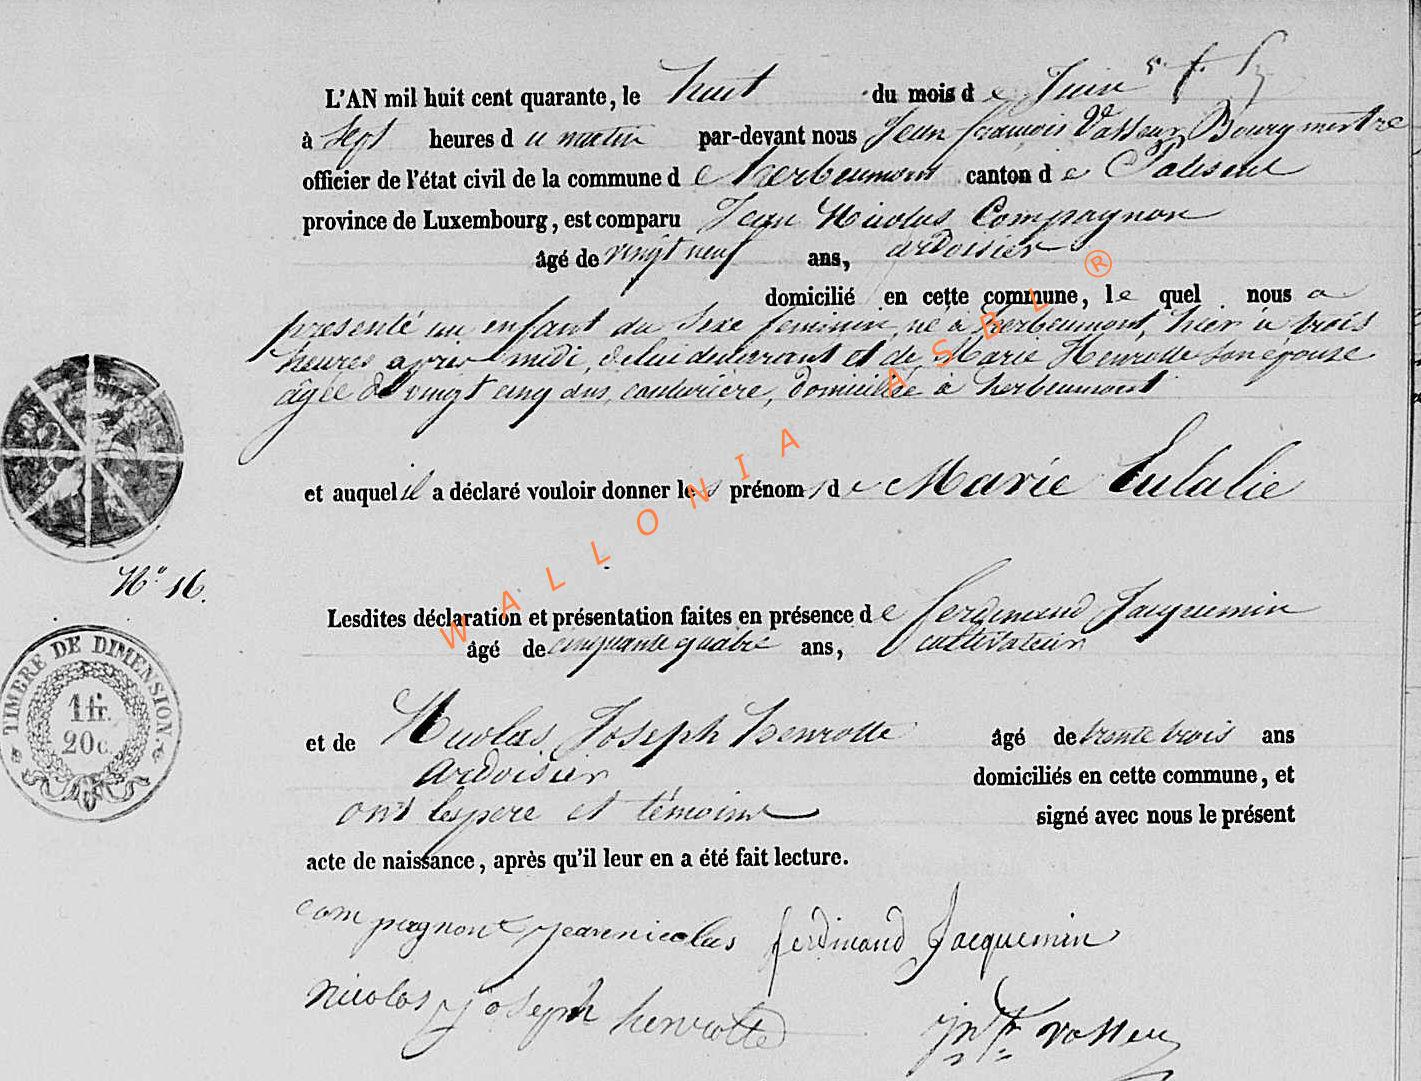 L'AN mil huit cent quarante, le huit du mois de Juin
à Sept heures du matin par-devant nous Jean françois Vasseur Bourgmestre
officier de l'état civil de la commune de herbeumont canton de Paliseul
province de Luxembourg, est comparu Jean Nicolas Compagnon
âgé de vingt neuf ans, ardoisier
domicilié en cette commune, le quel nous a
présenté un enfant du Sexe féminin, né à herbeumont, hier à trois
heures après midi, de lui déclarant et de Marie Henrotte son épouse
âgée de vingt cinq ans, couturière, domiciliée à herbeumont
et auquel il a déclaré vouloir donner les prénoms de Marie Eulalie
N° 16.
Lesdites déclaration et présentation faites en présence de ferdinand Jacquemin
âgé de cinquante quatre ans, cultivateur
TIMBRE DE DIMENSION
1 fr.
20 c.
et de Nicolas Joseph henrotte âgé de trente trois ans
ardoisier domiciliés en cette commune, et
ont les pere et témoins signé avec nous le présent
acte de naissance, après qu'il leur en a été fait lecture.
compagnon jean nicolas ferdinand Jacquemin
nicolas joseph henrotte vasseur
WALLONIA ASBL ®